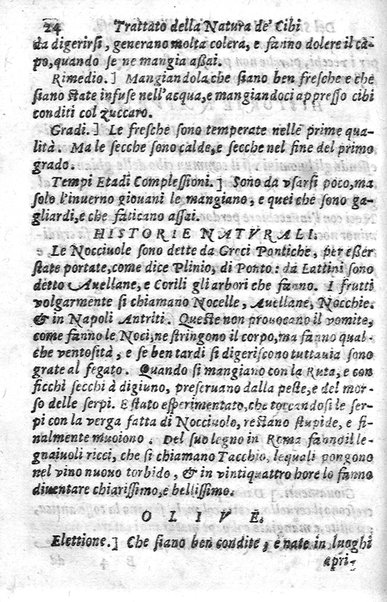 24 Trattato della Natura de' Cibi
da digerirsi, generano molta colera, e fanno dolere il ca-
po, quando se ne mangia aßai.
Rimedio.] Mangiandola che siano ben fresche e che
siano state infuse nell'acqua, e mangiandoci appreßo cibi
conditi col zuccaro.
Gradi.] Le fresche sono temperate nelle prime qua-
lità. Ma le secche sono calde, e secche nel fine del primo
grado.
Tempi Etadi Complessioni.] Sono da vsarsi poco, ma
solo l'inuerno giouani le mangiano, e quei che sono ga-
gliardi, e che faticano assai.
HISTORIE NATVRALI.
Le Nocciuole sono dette da Greci Pontiche, per eßer
state portate, come dice Plinio, di Ponto: da Lattini sono
detto Auellane, e Corili gli arbori che fanno. I frutti
volgarmente si chiamano Nocelle, Auellane, Nocchie.
& in Napoli Antriti. Queste non prouocano il vomite,
come fanno le Noci, ne stringono il corpo, ma fanno qual-
che ventosità, e se ben tardi si digeriscono tuttauia sono
grate al fegato. Quando si mangiano con la Ruta, e con
ficchi secchi à digiuno, preseruano dalla peste, e del mor-
so delle serpi. E stato esperimentato, che toccandosi le ser-
pi con la verga fatta di Nocciuolo, restano stupide, e fi-
nalmente muoiono. Del suo legno in Roma fanno i le-
gnaiuoli ricci, che si chiamano Tacchio, lequali pongono
nel vino nuouo torbido, & in vintiquattro hore lo fanno
diuentare chiarissimo, e bellissimo.
OLIVE.
Elettione.] Che siano ben condite, e nate in luoghi
apri-